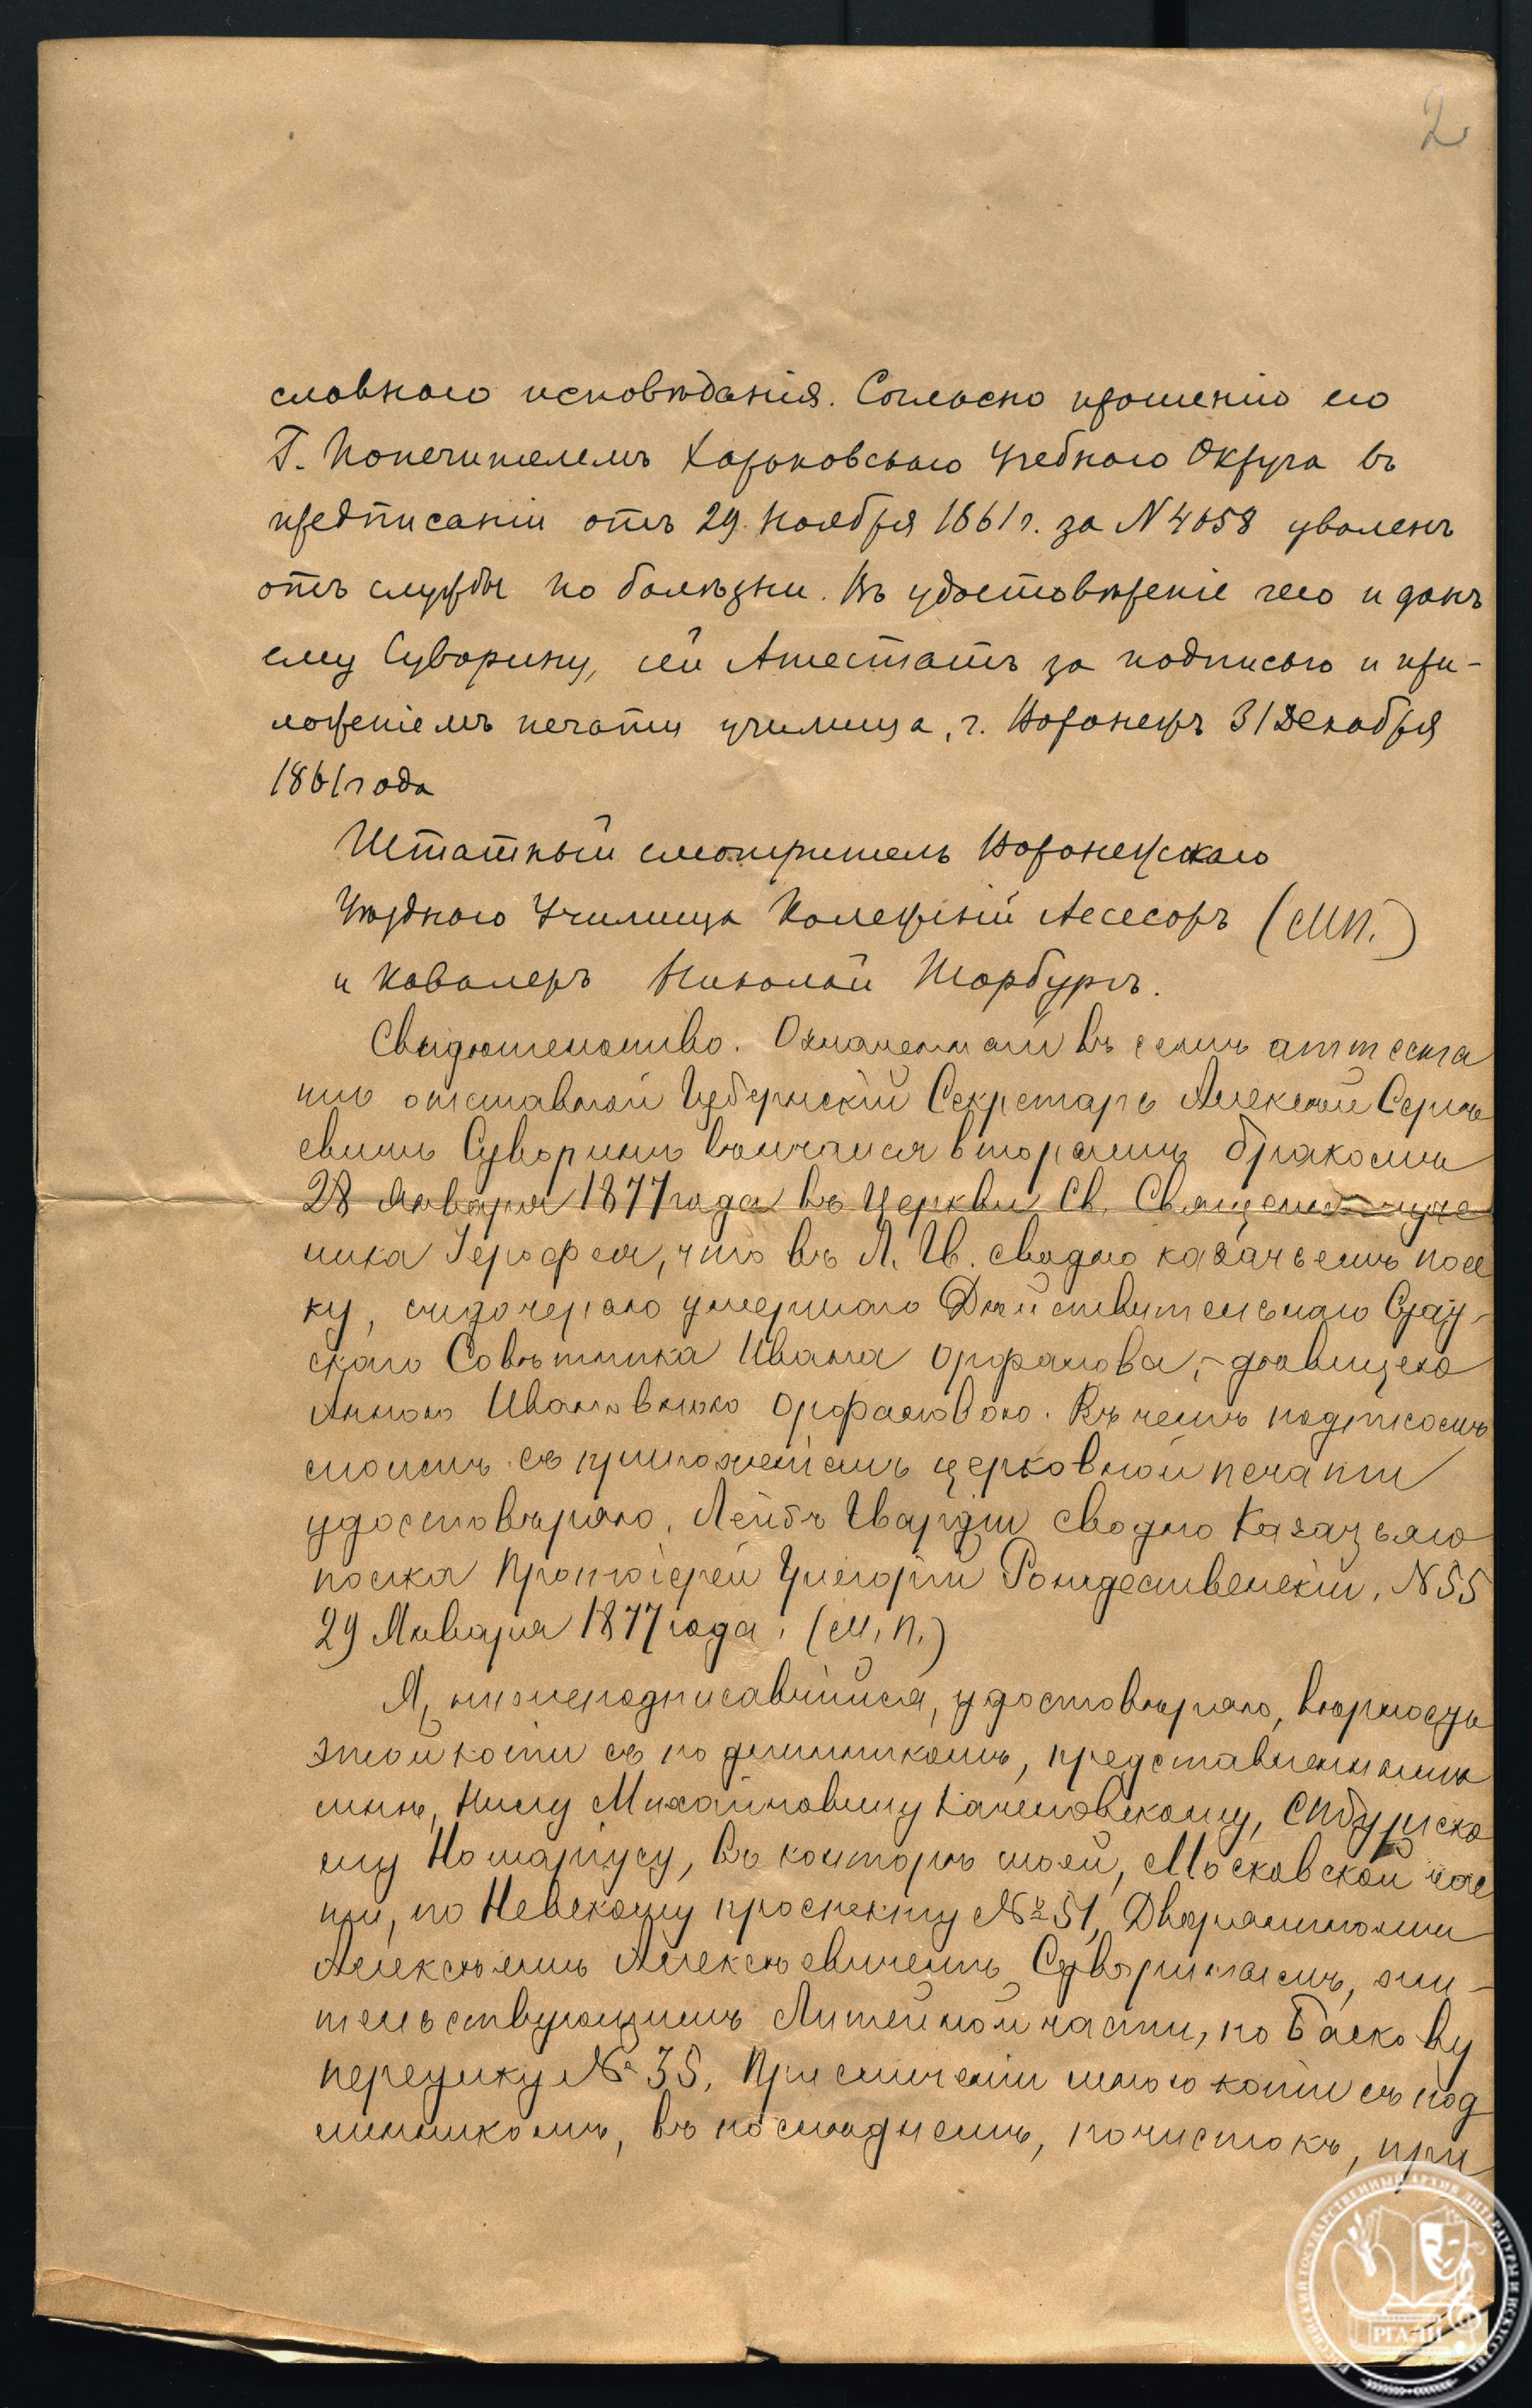 2
словнаго исповѣданія. Согласно прошенію его
Г. Попечителемъ Харьковскаго Учебнаго Округа въ
предписаніи отъ 29 Ноября 1861 г. за N 4658 уволенъ
отъ службы по болѣзни. Въ удостовѣреніе чего и данъ
ему Суворину, сей Атестатъ за подписью и при-
ложеніемъ печати училища, г. Воронежъ 31 Декабря
1861 года
Штатный смотритель Воронежскаго
Уѣзднаго Училища Колежскій Асесоръ (М.П.)
и Кавалеръ Николай
Свидѣтельство. Означенный въ семъ аттеста
тѣ отставной Губернскій Секретарь Алексѣй Сергѣ
евичъ Суворинъ вѣнчался вторымъ бракомъ
28 Января 1877 года въ Церкви Св. Священномуче
ника Іерофея, что въ Л. Гв. сводно казачьемъ пол
ку, съ дочерью умершаго Дѣйствительнаго Стат-
скаго Совѣтника Ивана Орфанова, - дѣвицею
Анною Ивановною Орфановою. Въ чемъ подписомъ
своимъ съ приложеніемъ церковной печати
удостовѣряю. Лейбъ Гвардіи Сводно Казачьяго
полка Протоіерей Григорій Рождественскій. N 55
29 Января 1877 года. (М.П.)
Я, нижеподписавшійся, удостовѣряю, вѣрность
этой копіи съ подлинникомъ, представленнымъ
мнѣ, Нилу Михайловичу Качеловскому, СПбургско
му Нотаріусу, въ конторѣ моей, Московской час
ти, по Невскому проспекту № 51, Дворяниномъ
Алексѣемъ Алексѣевичемъ Суворинымъ, жи-
тельствующимъ Литейной части, по Баскову
переулку № 35. При сличеніи мною копіи съ под
линникомъ, въ послѣднемъ, почистокъ, при
РОССИЙСКИЙ ГОСУДАРСТВЕННЫЙ АРХИВ ЛИТЕРАТУРЫ И ИСКУССТВА
РГАЛИ